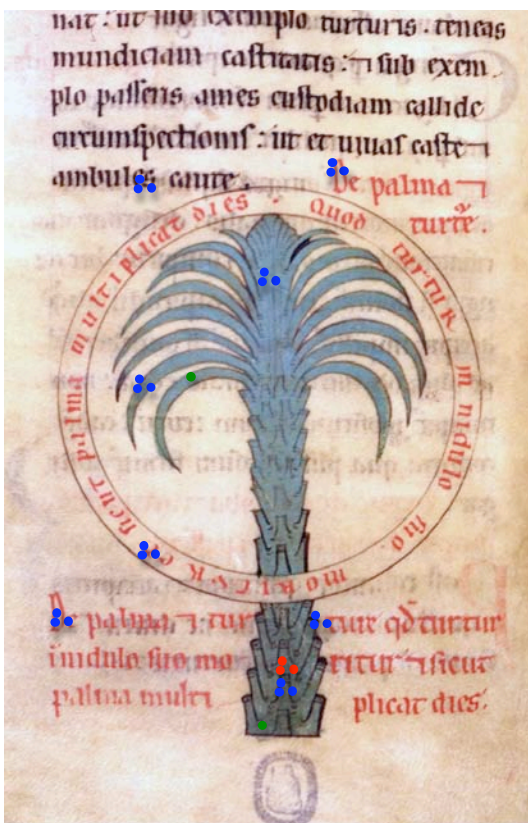 nat: ut suo exemplo turturis. teneas
mundiciam castitatis: ⁊ sub exem
plo passeris ames custodiam callide
circumspectionis: ut et uiuas caste ⁊
ambules caute.
De palma ⁊
turture.
Quod turtur in nidulo suo moritur et sicut palma multiplicat dies.
De palma ⁊ tur ture qd turtur
inidulo suo mo ritur ⁊ sicut
palma multi plicat dies.